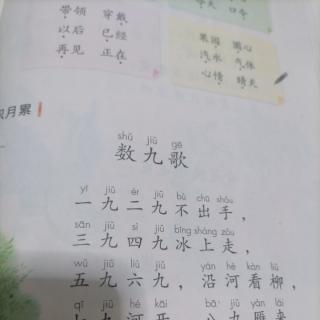 带领 穿戴
以后 已经
再见 正在
汽水 气体
心情 晴天
月累
shǔ jiǔ gē
数九歌
yī jiǔ èr jiǔ bù chū shǒu
一九二九不出手，
sān jiǔ sì jiǔ bīng shàng zǒu
三九四九冰上走，
wǔ jiǔ liù jiǔ yán hé kàn liǔ
五九六九，沿河看柳，
qī jiǔ hé kāi bā jiǔ yàn lái
七九河开，八九雁来